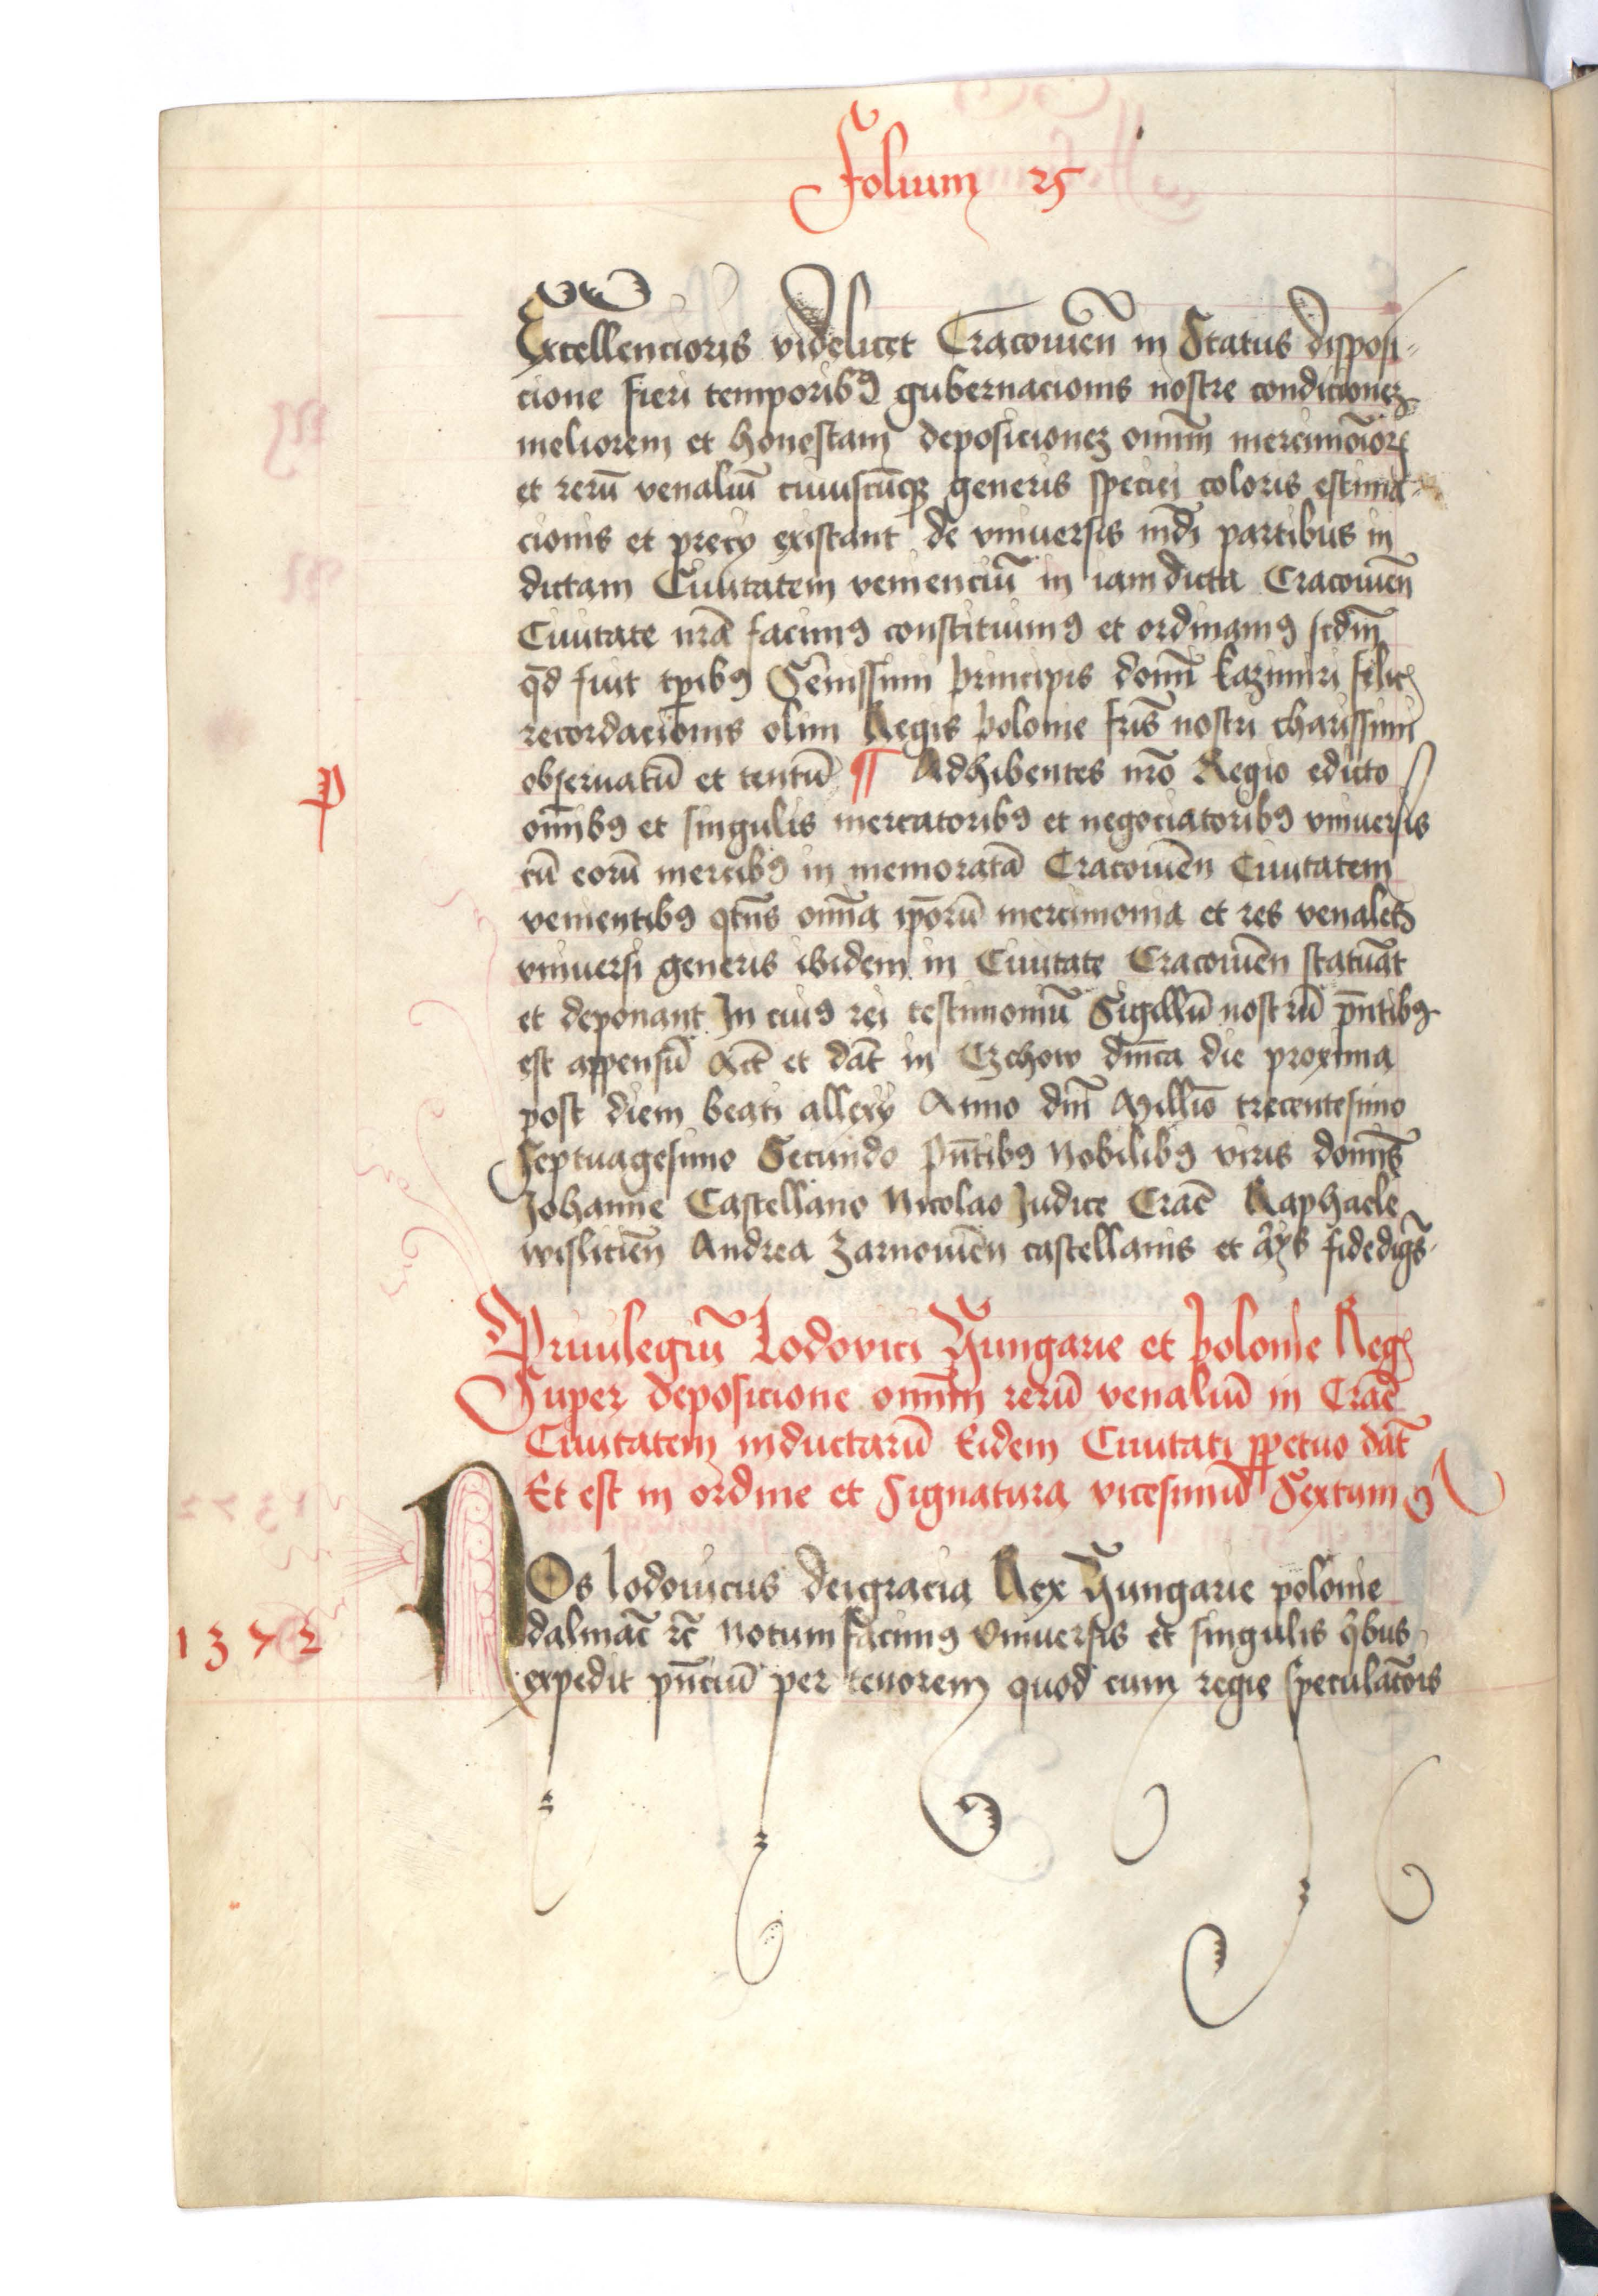 Folium 25
Excellencioris videlicet Cracouień in Status disposi-
cione fieri temporibꝰ gubernacionis nostre condicionez
meliorem et honestam deposicionez omnĩm mercimoĩorꝝ
et rerũ venaliũ cuiuscũqꝫ generis speciei coloris estima-
cionis et precÿ existant de vniuersis mdi partibus in
dictam Ciuitatem veniencĩu in iamdicta Cracouień
Ciuitate nr̃a facimꝰ constituimꝰ et ordinamꝰ scdm̃
qd̃ fuit tp̃ibꝰ Sẽnissimi principis domĩ kazimiri felicꝭ
recordacionis olim Regis polonie fr̃is nostri charissimi
obseruatũ et tentũ ¶ Adhibentes nr̃o Regio edicto
P
omĩbꝰ et singulis mercatoribꝰ et negociatoribꝰ vniuersis
cũ eorũ mercibꝰ in memoratã Cracouień Ciuitatem
venientibꝰ qtñs omĩa ip̃orũ mercimonia et res venales
vniuersi generis ibidem in Ciuitate Cracouień statuãt
et deponant In cuiꝰ rei testimoniũ Sigillũ nostrũ pñtibꝰ
est appensũ Act̃ et dat̃ in Czchow dm̃ca die proxima
post diem beati allexÿ Anno dm̃ Millĩo trecentesimo
Septuagesimo Secundo pñtibꝰ Nobilibꝰ viris domĩs
Johanne Castellano Nicolao Judice Crac̃ Raphaele
wislicień Andrea Zarnouień castellanis et al̃ꝭs fidedigñs
Priuilegiũ Lodovici Hungarie et polonie Regꝭ
Super deposicione omnĩm rerũ venaliũ in Crac̃
Ciuitatem inductarũ Eidem Ciuitati ꝑpetuo dat̃
Et est in ordine et Signatura vicesimũ Sextum
NOs lodouicus deigracia Rex Hungarie polonie
dalmac̃ ꝛc̃ Notum facimꝰ Vniuersis et singulis qͥbus
1372
expedit pñciũ per tenorem quod cum regie speculac̃ois